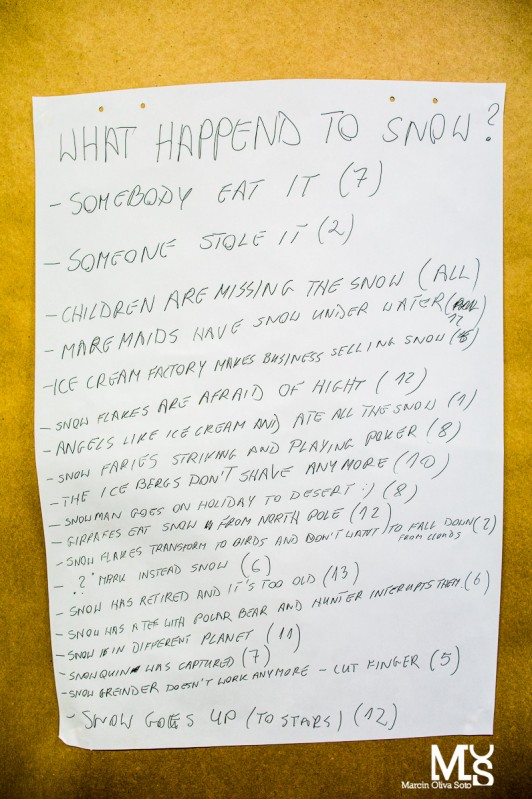 WHAT HAPPEND TO SNOW?
- SOMEBODY EAT IT (7)
- SOMEONE STOLE IT (2)
- CHILDREN ARE MISSING THE SNOW (ALL)
- MAREMAIDS HAVE SNOW UNDER WATER (12
- ICE CREAM FACTORY MAKES BUSINESS SELLING SNOW
- SNOW FLAKES ARE AFRAID OF HIGHT (12)
- ANGELS LIKE ICE CREAM AND ATE ALL THE SNOW (1)
- SNOW FARIES STRIKING AND PLAYING POKER (8)
- THE ICE BERGS DON'T SHAVE ANYMORE (10)
- SNOWMAN GOES ON HOLIDAY TO DESERT :) (8)
- GIPRAFES EAT SNOW FROM NORTH POLE (12)
- SNOW FLAKES TRANSFORM TO BIRDS AND DON'T WANT TO FALL DOWN (2)
FROM CLOUDS
- "?" MARK INSTEAD SNOW (6)
- SNOW HAS RETIRED AND IT'S TOO OLD (13)
- SNOW HAS A TEE WITH POLAR BEAR AND HUNTER INTERUPTS THEM (6)
- SNOW IN DIFFERENT PLANET (11)
- SNOWQUIN WAS CAPTURED (7)
- SNOW GREINDER DOESN'T WORK ANYMORE - CUT FINGER (5)
- SNOW GOES UP (TO STARS) (12)
MOS
Marcin Oliva Soto